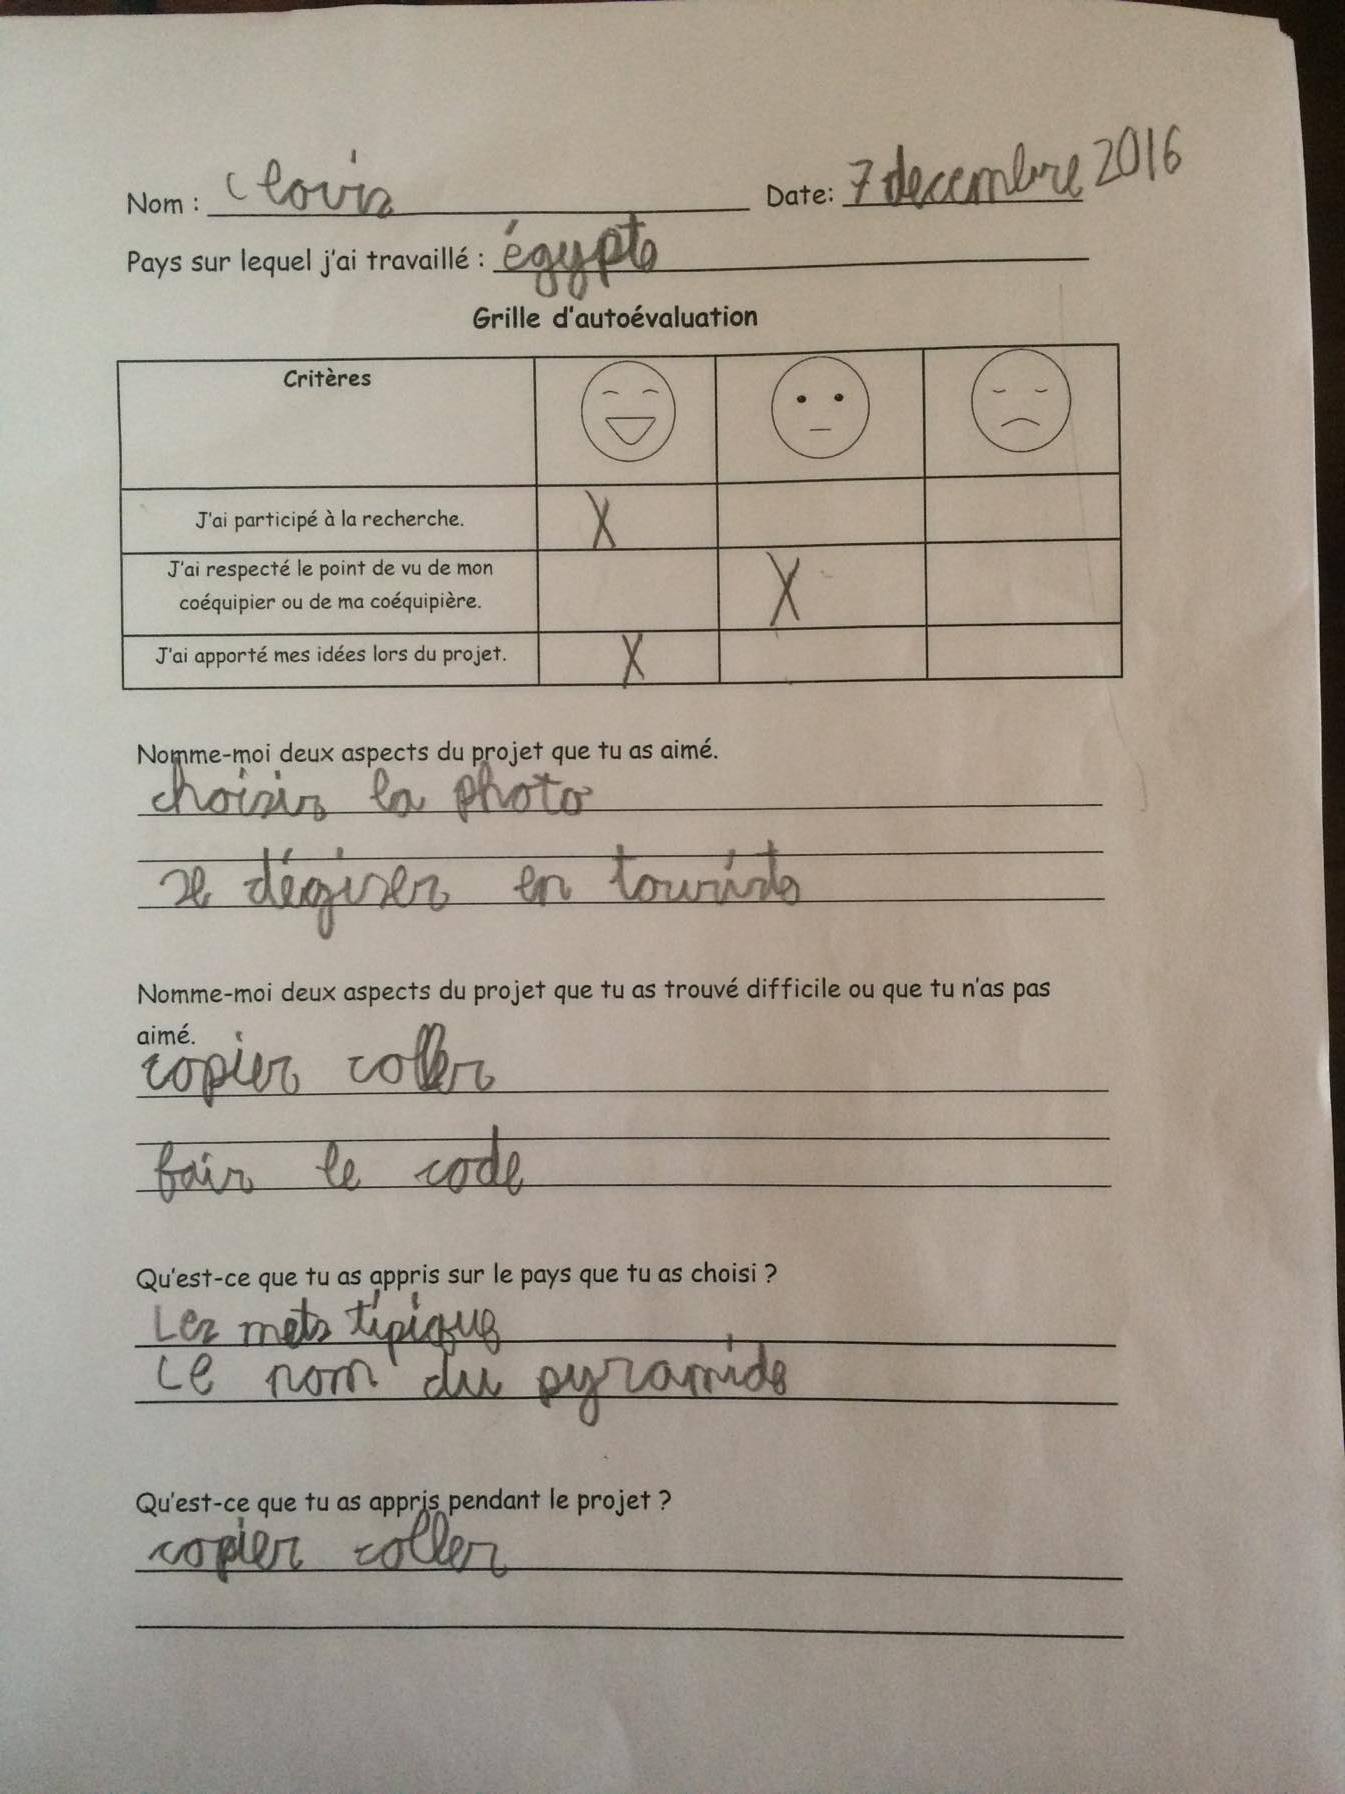 Nom : Clovis Date: 7 decembre 2016
Pays sur lequel j'ai travaillé : égypte
Grille d'autoévaluation
Critères
J'ai participé à la recherche. X
J'ai respecté le point de vu de mon
coéquipier ou de ma coéquipière. X
J'ai apporté mes idées lors du projet. X
Nomme-moi deux aspects du projet que tu as aimé.
choisir la photo
se dégiser en touriste
Nomme-moi deux aspects du projet que tu as trouvé difficile ou que tu n'as pas
aimé.
copier coller
fair le code
Qu'est-ce que tu as appris sur le pays que tu as choisi ?
Les mets tipique
Le nom du pyramide
Qu'est-ce que tu as appris pendant le projet ?
copier coller